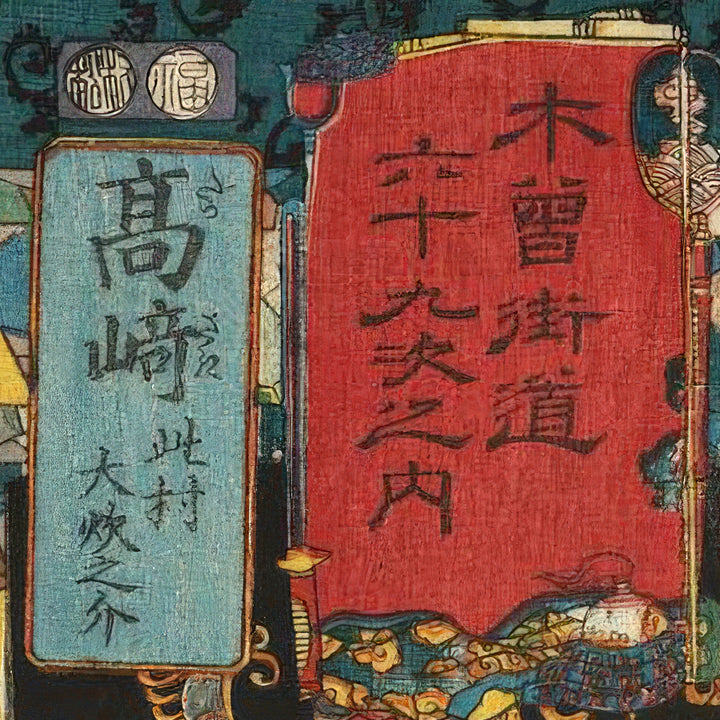 木曽街道
六十九次之内
高﨑
此村
大炊之介